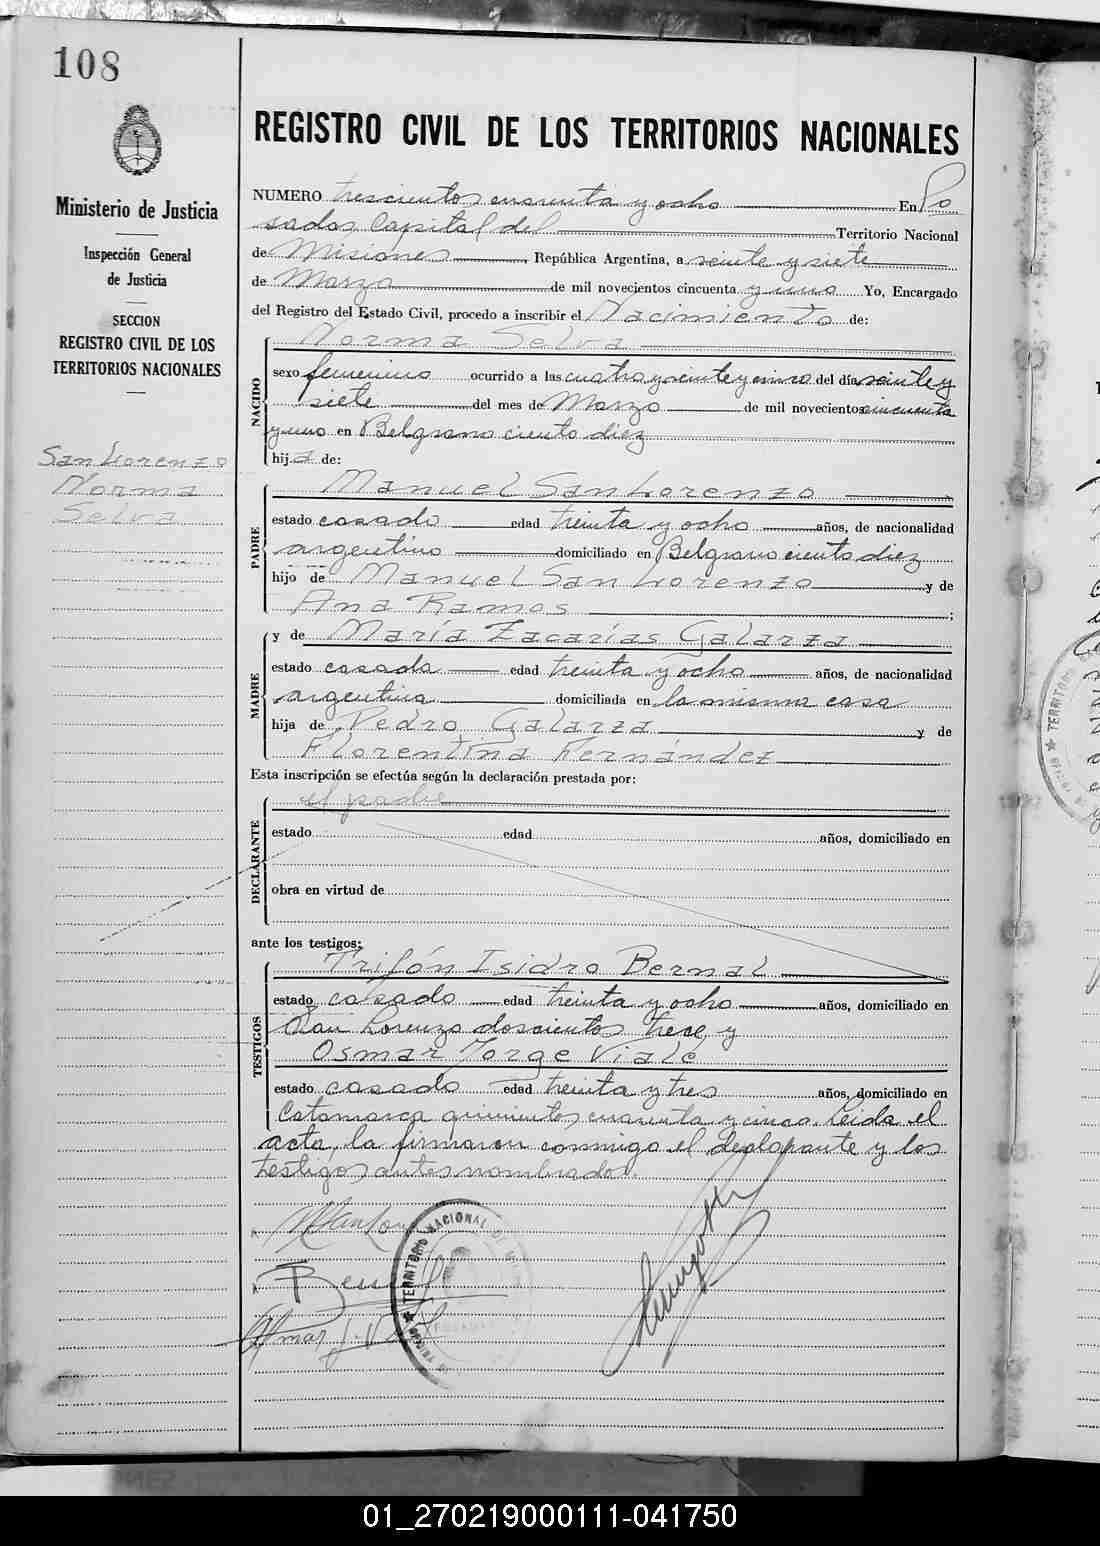 108
Ministerio de Justicia
Inspección General
de Justicia
SECCION
REGISTRO CIVIL DE LOS
TERRITORIOS NACIONALES
San Lorenzo
Norma
Selva
REGISTRO CIVIL DE LOS TERRITORIOS NACIONALES
NUMERO trescientos cuarenta y ocho En Po
sadas Capital del Territorio Nacional
de Misiones, República Argentina, a veinte y siete
de Marzo de mil novecientos cincuenta y uno Yo, Encargado
del Registro del Estado Civil, procedo a inscribir el Nacimiento de:
NACIDO
Norma Selva
sexo femenino ocurrido a las cuatro y veinte y cinco del día veinte y
siete del mes de Marzo de mil novecientos cincuenta
y uno en Belgrano ciento diez
hija de:
PADRE
Manuel San Lorenzo
estado casado edad treinta y ocho años, de nacionalidad
argentino domiciliado en Belgrano ciento diez
hijo de Manuel San Lorenzo y de
Ana Ramos ;
MADRE
y de María Zacarías Galarza
estado casada edad treinta y ocho años, de nacionalidad
argentina domiciliada en la misma casa
hija de Pedro Galarza y de
Florentina Fernández
Esta inscripción se efectúa según la declaración prestada por:
DECLARANTE
el padre
estado edad años, domiciliado en
obra en virtud de
ante los testigos:
TESTIGOS
Trifón Isidro Bernal
estado casado edad treinta y ocho años, domiciliado en
San Lorenzo doscientos trece y
Osmar Jorge Viale
estado casado edad treinta y tres años, domiciliado en
Catamarca quinientos cuarenta y cinco. Leida el
acta, la firmaron conmigo el declarante y los
testigos antes nombrados.
TERRITORIO NACIONAL DE
01_270219000111-041750